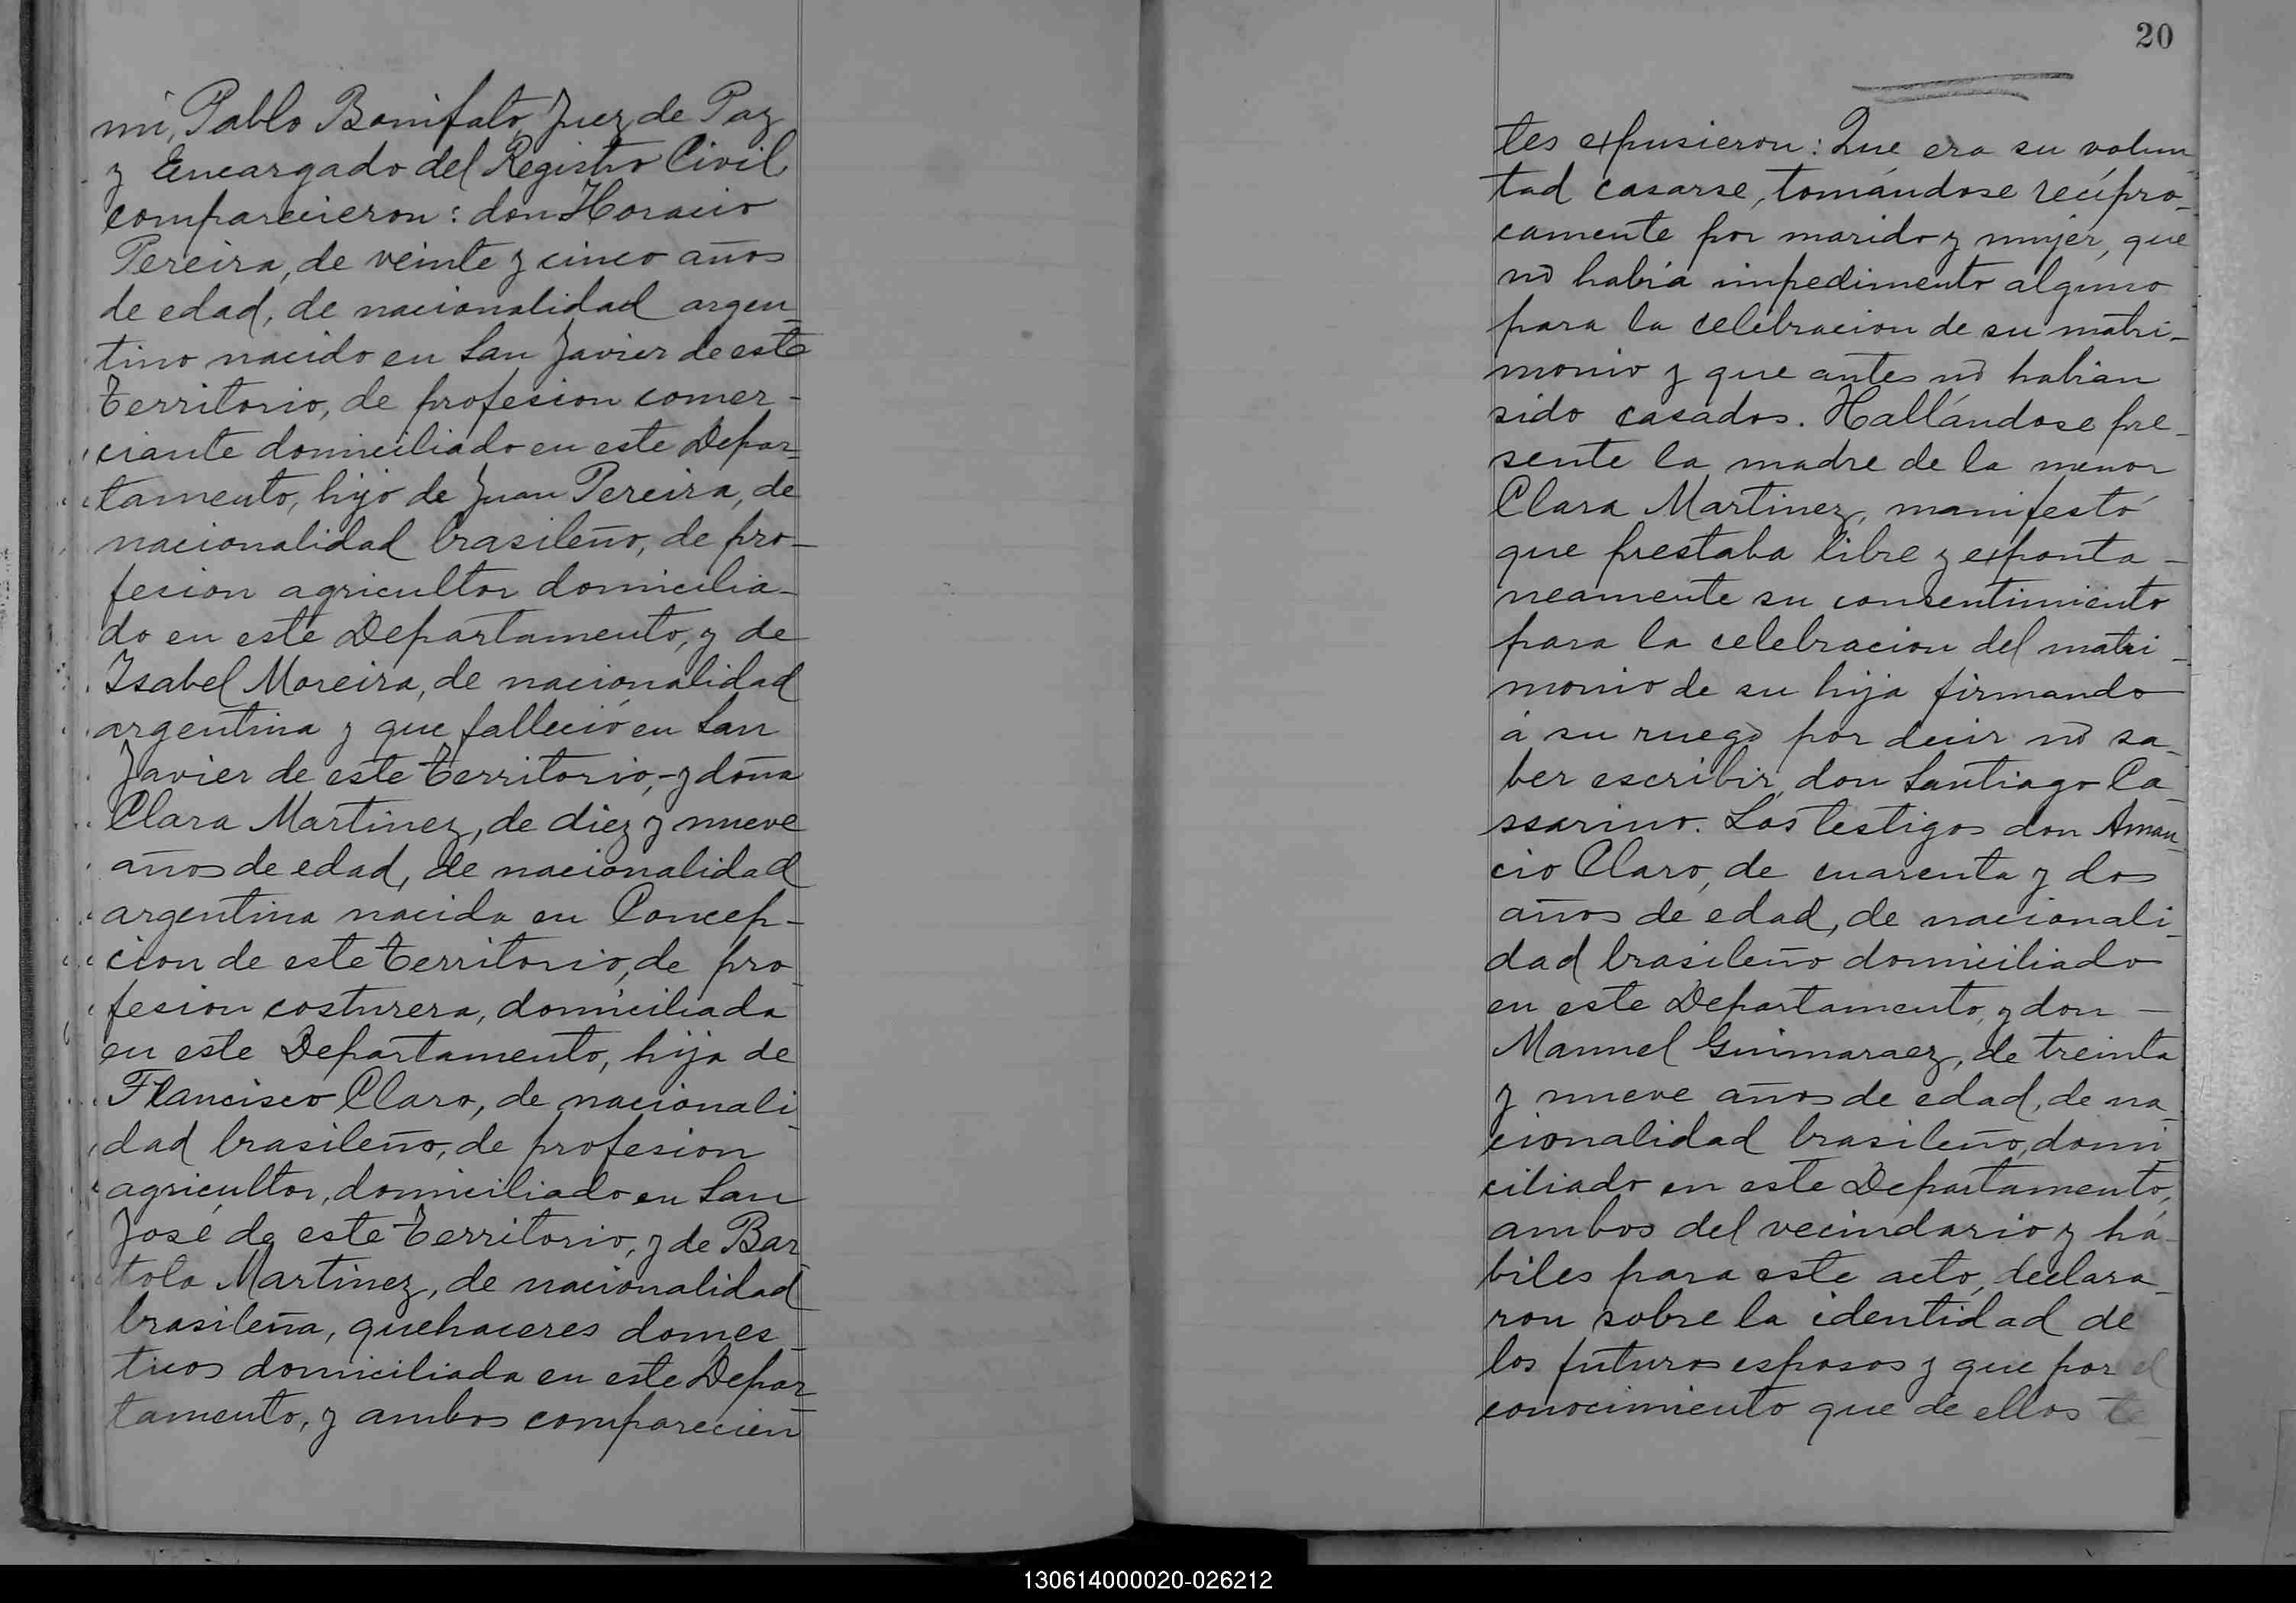 mi, Pablo Bonifato, Juez de Paz
y Encargado del Registro Civil
comparecieron: don Horacio
Pereira, de veinte y cinco años
de edad, de nacionalidad argen-
tino nacido en San Javier de este
Territorio, de profesion comer-
ciante domiciliado en este Depar-
tamento, hijo de Juan Pereira, de
nacionalidad brasileño, de pro-
fesion agricultor domicilia-
do en este Departamento, y de
Isabel Moreira, de nacionalidad
argentina y que falleció en San
Javier de este Territorio,- y doña
Clara Martinez, de diez y nueve
años de edad, de nacionalidad
argentina nacida en Concep-
cion de este Territorio, de pro-
fesion costurera, domiciliada
en este Departamento, hija de
Francisco Claro, de nacionali-
dad brasileño, de profesion
agricultor, domiciliado en San
José de este Territorio, y de Bar-
tola Martinez, de nacionalidad
brasileña, quehaceres domes-
ticos domiciliada en este Depar-
tamento, y ambos comparecien
20
tes expusieron: Que era su volun-
tad casarse, tomándose recípro-
camente por marido y mujer, que
nó había impedimento alguno
para la celebracion de su matri-
monio y que antes nó habian
sido casados. Hallándose pre-
sente la madre de la menor
Clara Martinez, manifestó
que prestaba libre y exponta-
neamente su consentimiento
para la celebracion del matri-
monio de su hija firmando
á su ruego por decir nó sa-
ber escribir, don Santiago Ca-
ssarino. Los testigos don Aman-
cio Claro, de cuarenta y dos
años de edad, de nacionali-
dad brasileño domiciliado
en este Departamento, y don -
Manuel Guimaraez, de treinta
y nueve años de edad, de na-
cionalidad brasileño, domi-
ciliado en este Departamento,
ambos del vecindario y há-
biles para este acto, declara-
ron sobre la identidad de
los futuros esposos y que por el
conocimiento que de ellos te
130614000020-026212